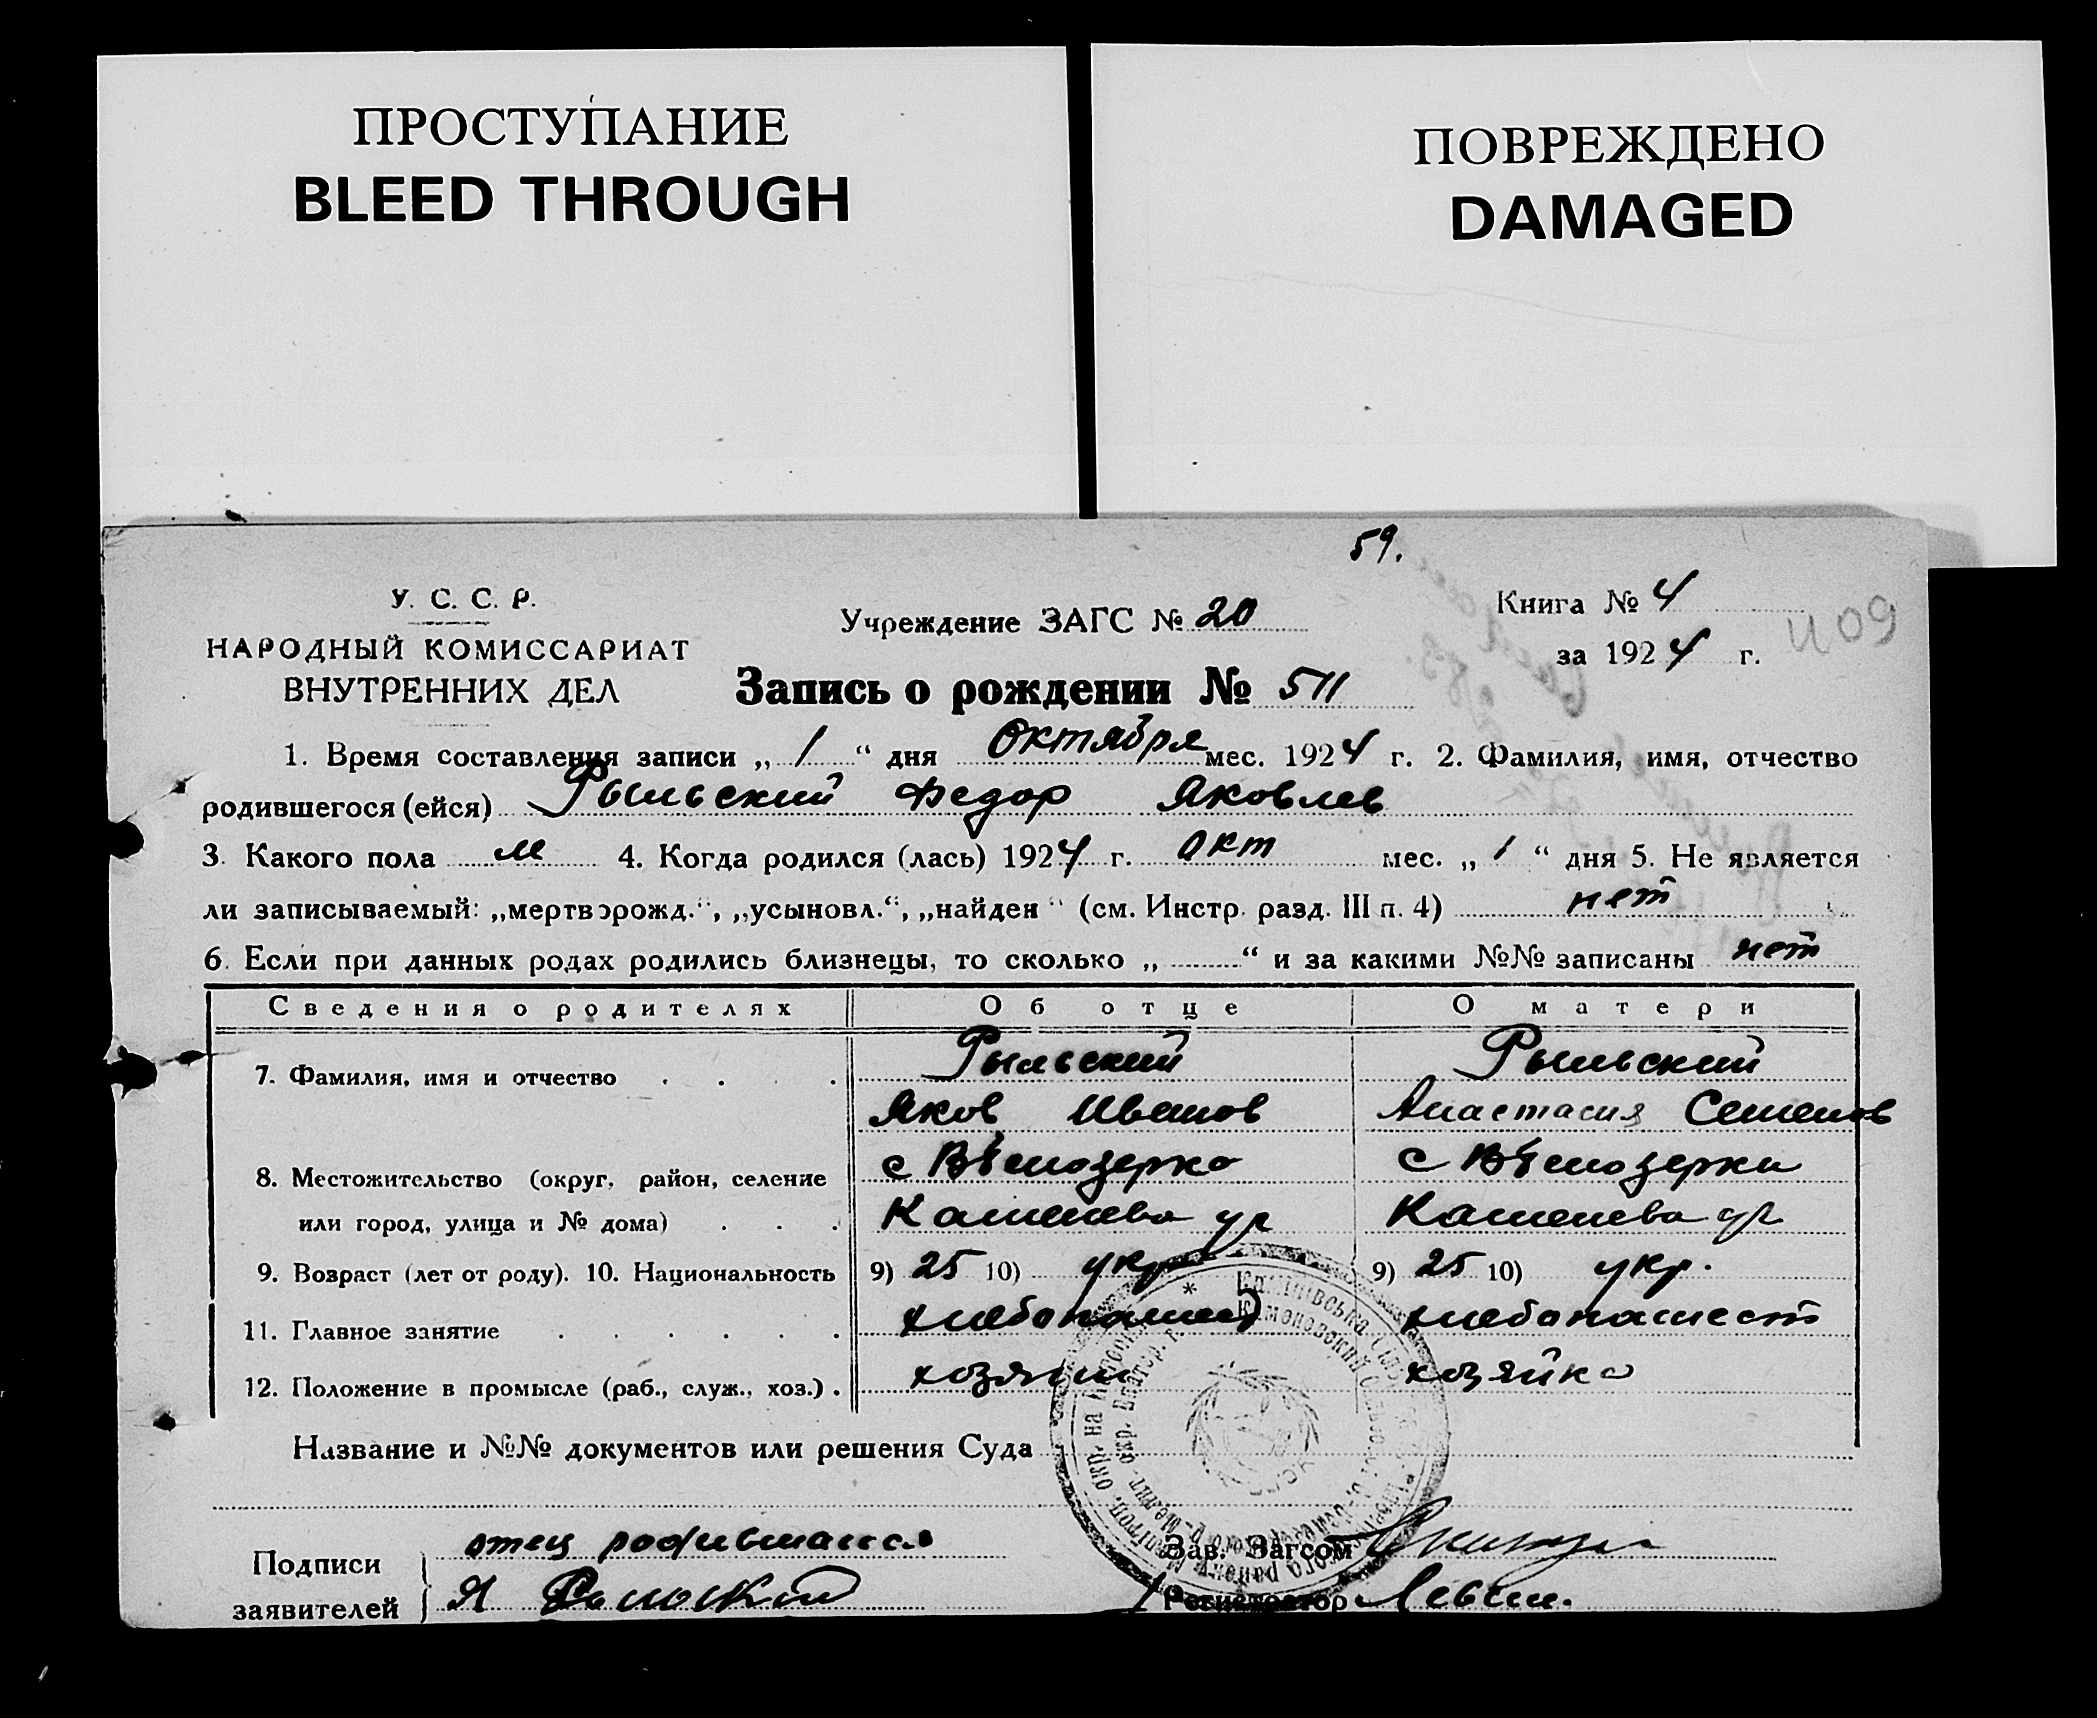 ПРОСТУПАНИЕ
BLEED THROUGH
ПОВРЕЖДЕНО
DAMAGED
59.
У. С. С. Р.
НАРОДНЫЙ КОМИССАРИАТ
ВНУТРЕННИХ ДЕЛ
Учреждение ЗАГС № 20
Книга № 4
за 1924 г.
Запись о рождении № 511
1. Время составления записи „ 1 “ дня Октября мес. 1924 г. 2. Фамилия, имя, отчество
родившегося (ейся) Рыльский Федор Яковлев
3. Какого пола м 4. Когда родился (лась) 1924 г. окт мес. „ 1 “ дня 5. Не является
ли записываемый: „мертворожд.“, „усыновл.“, „найден“ (см. Инстр. разд. III п. 4) нет
6. Если при данных родах родились близнецы, то сколько „ “ и за какими №№ записаны нет
Сведения о родителях Об отце О матери
7. Фамилия, имя и отчество Рыльский Рыльский
Яков Иванов Анастасия Семенов
8. Местожительство (округ, район, селение
или город, улица и № дома)
9. Возраст (лет от роду). 10. Национальность 9) 25 10) укр 9) 25 10) укр.
11. Главное занятие хлебопашест
12. Положение в промысле (раб., служ., хоз.) хозяин хозяйка
Название и №№ документов или решения Суда
Подписи
заявителей
отец
Я Рыльский
Зав. Загсом
Регистратор